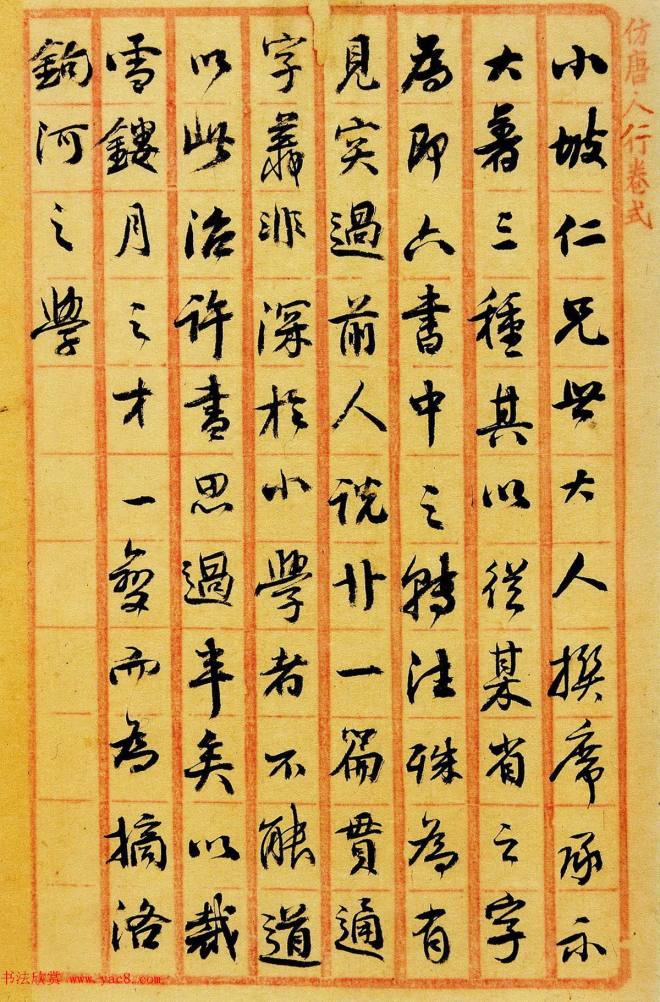 仿唐人行卷式
小坡仁兄世大人撰席承示
大著三種其以從某省之字
為即六書中之轉注殊為有
見突過前人說廿一篇貫通
字義非深於小學者不能道
以此治許書思過半矣以裁
雪鏤月之才一變而為摘洛
鉤河之學
书法欣赏 www.yac8.com